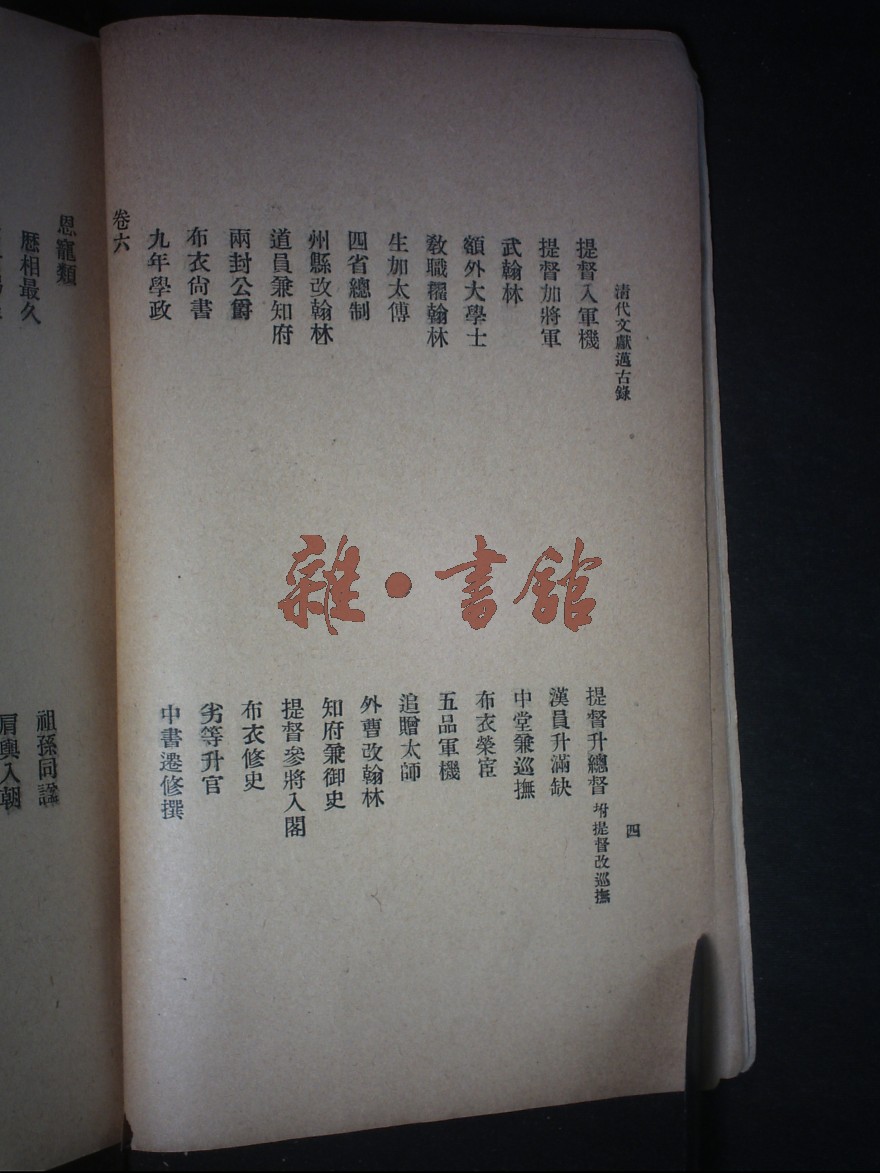 清代文獻邁古錄
四
提督入軍機
提督升總督 坿提督改巡撫
提督加將軍
漢員升滿缺
武翰林
中堂兼巡撫
額外大學士
布衣榮宦
教職擢翰林
五品軍機
生加太傅
追贈太師
四省總制
外曹改翰林
州縣改翰林
知府兼御史
道員兼知府
提督參將入閣
兩封公爵
布衣修史
布衣尙書
劣等升官
九年學政
中書遷修撰
卷六
恩寵類
歷相最久
祖孫同諡
肩輿入朝
雜·書館